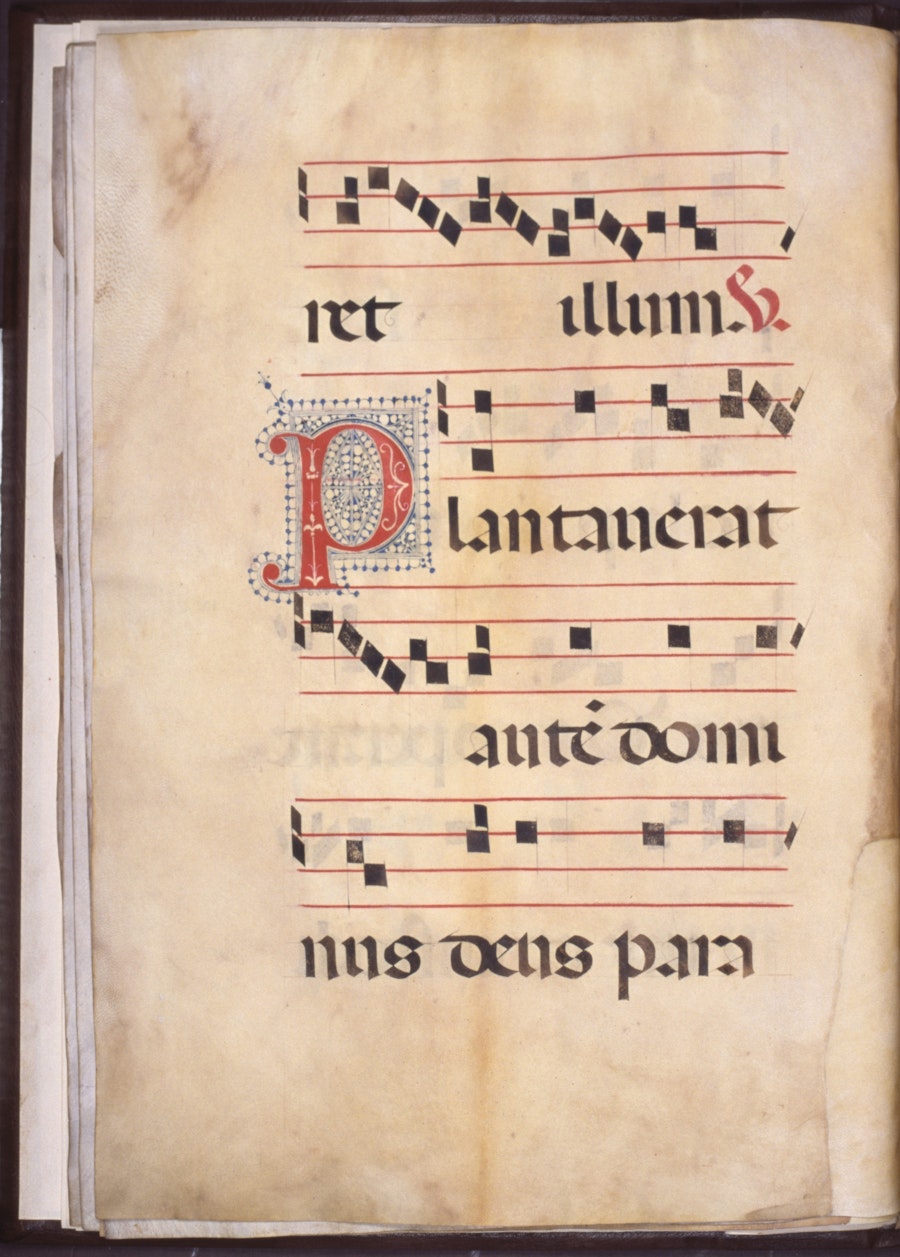 ret illum. V.
Plantauerat
auté domi
nus deus para